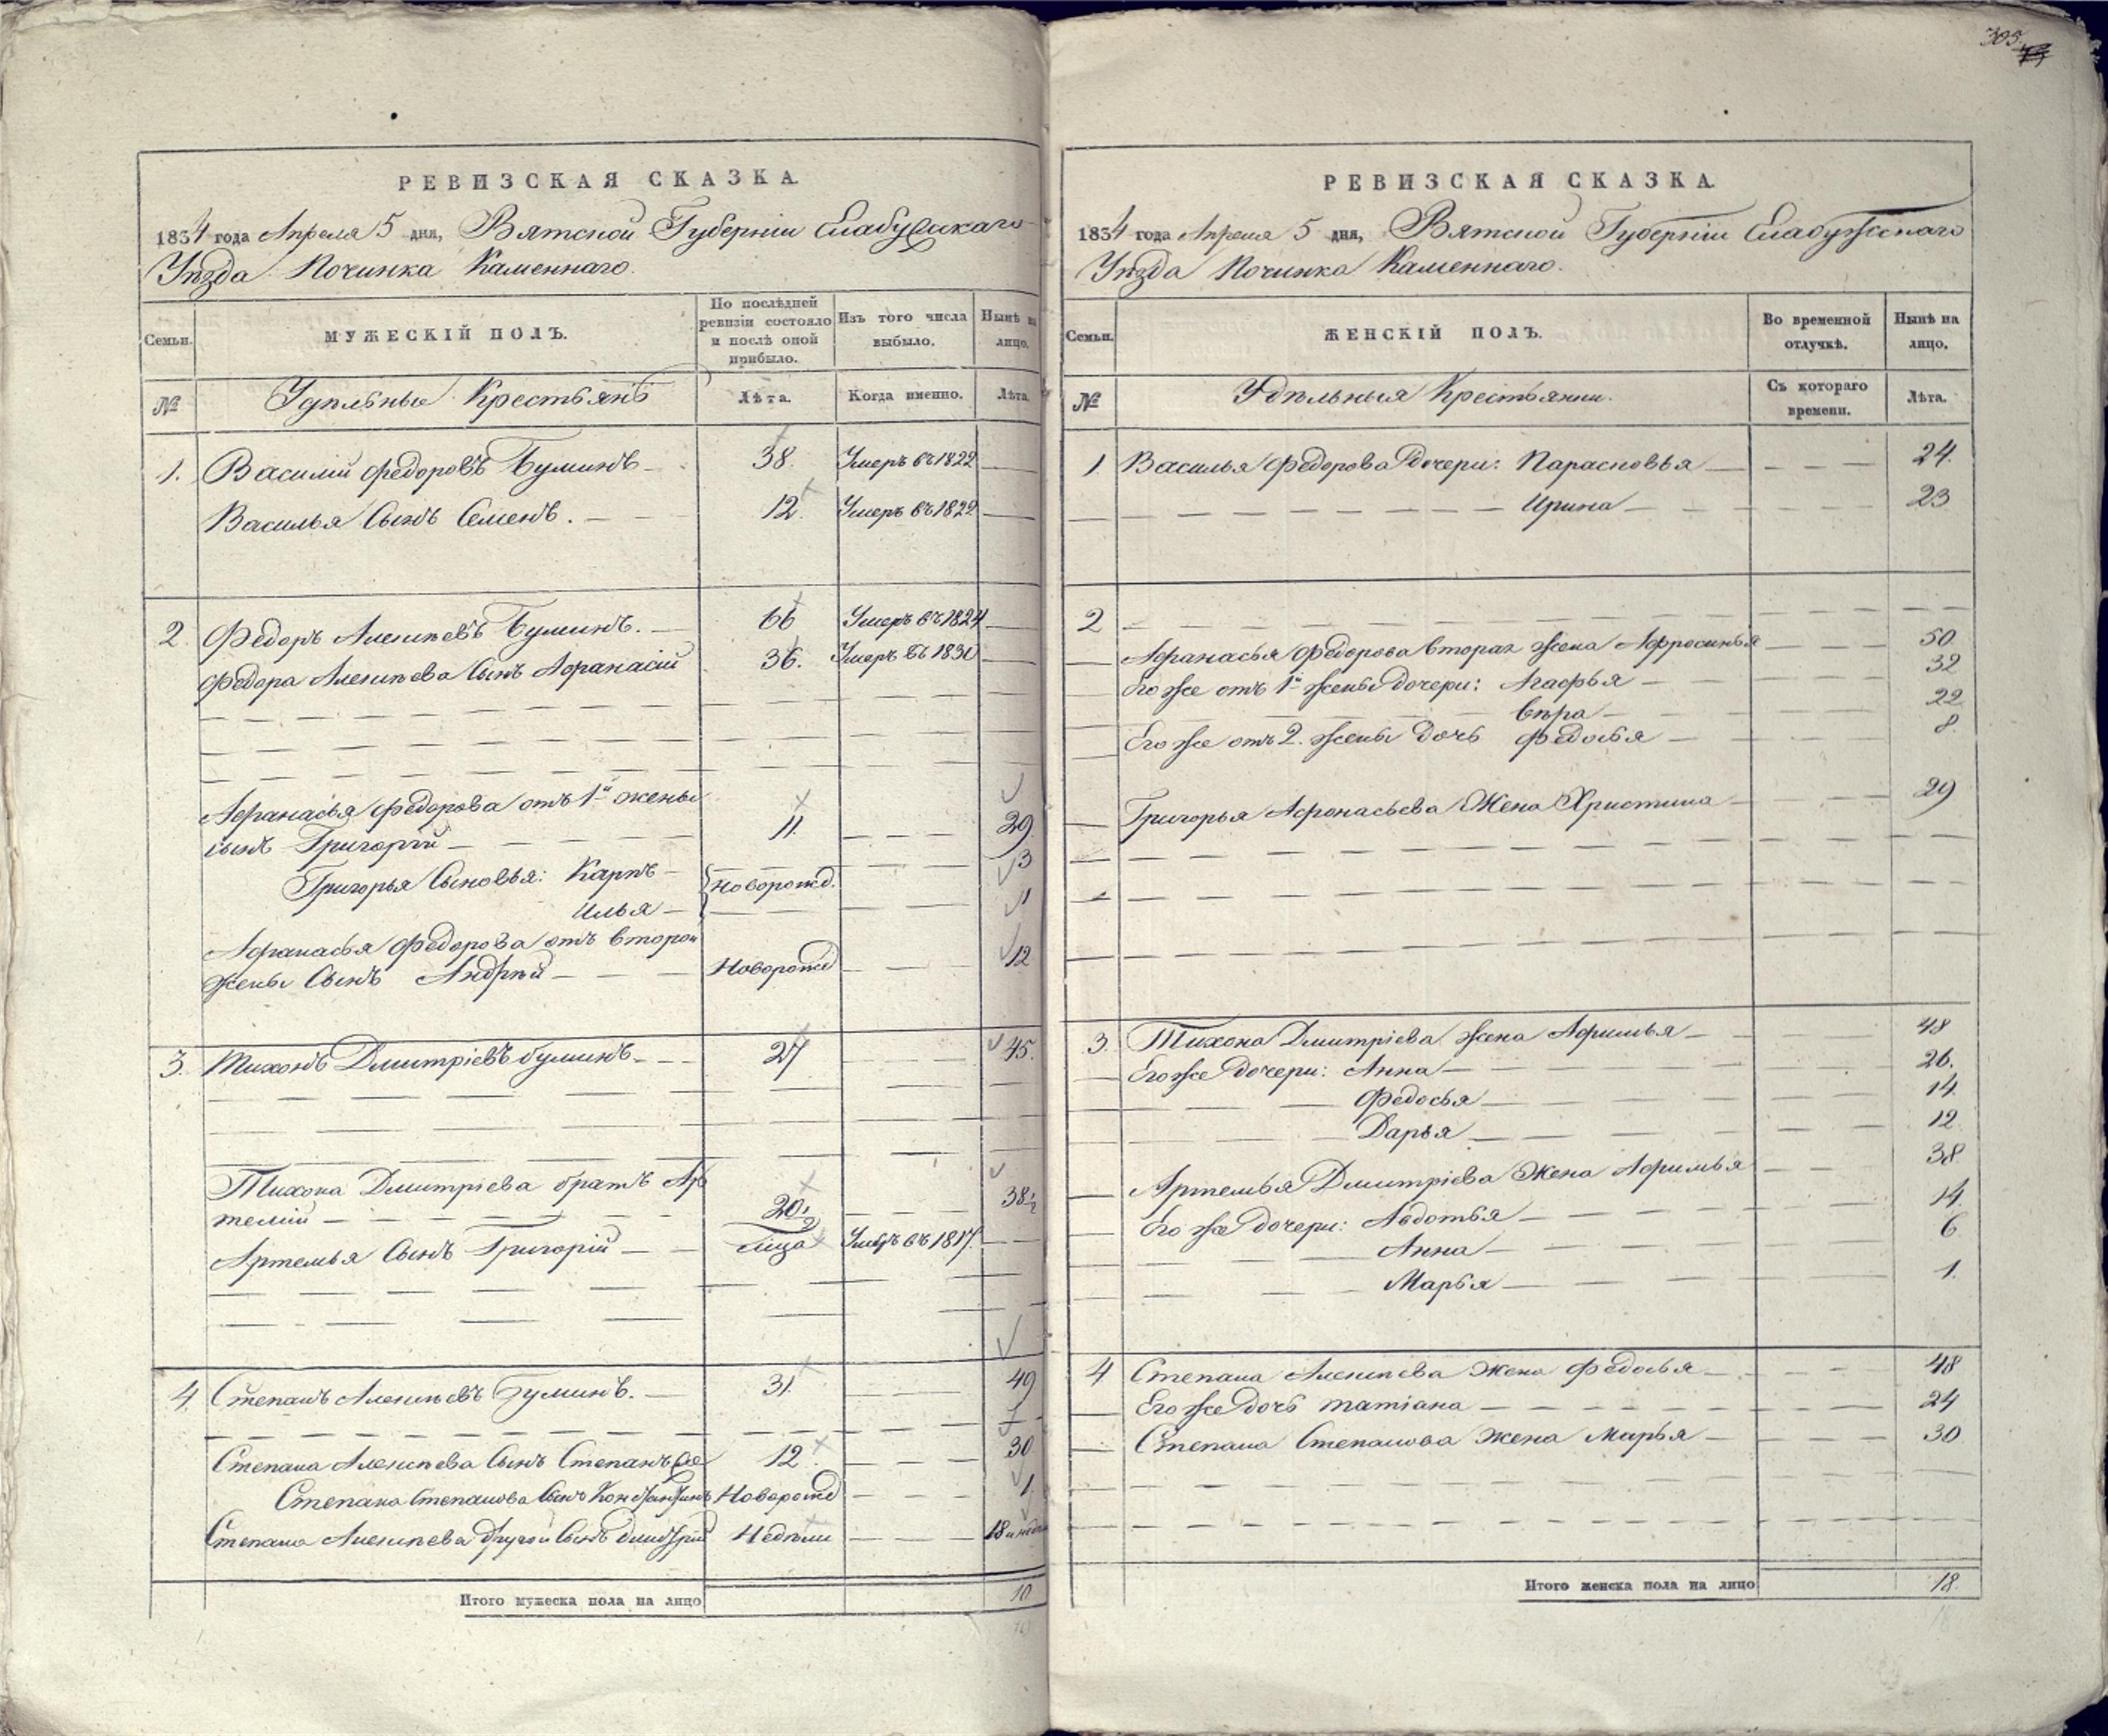 305.
РЕВИЗСКАЯ СКАЗКА.
1834 года Апреля 5 дня, Вятской Губерніи Елабужскаго
Уѣзда Починка Каменнаго.
Семьи.
МУЖЕСКІЙ ПОЛЪ.
По послѣдней ревизіи состояло и послѣ оной прибыло.
Изъ того числа выбыло.
Нынѣ на лицо.
№
Удѣльные Крестьянъ
Лѣта.
Когда именно.
Лѣта.
1. Василій Федоровъ Буминъ 38. Умеръ въ 1822
Василья Сынъ Семенъ. 12. Умеръ въ 1822
2. Федоръ Алексѣевъ Буминъ. 66 Умеръ въ 1824
Федора Алексѣева Сынъ Афанасій 36. Умеръ въ 1830
Афанасья Федорова отъ 1й жены
сынъ Григорій 11. 29.
Григорья Сыновья: Карпъ Новорожд. 3
Илья 1
Афанасья Федорова отъ второй
жены Сынъ Андрѣй Новорожд 12
3. Тихонъ Дмитріевъ буминъ 27 45.
Тихона Дмитріева братъ Ар
темій 20 1/2 38 1/2
Артемья Сынъ Григорій Умеръ въ 1817.
4. Степанъ Алексѣевъ Буминъ. 31. 49
Степана Алексѣева Сынъ Степанъ 12. 30
Степана Степанова Сынъ Константинъ Новорожд 1
Степана Алексѣева другой Сынъ дмитрій Недѣли 18
Итого мужеска пола на лицо 10
РЕВИЗСКАЯ СКАЗКА.
1834 года Апреля 5 дня, Вятской Губерніи Елабужскаго
Уѣзда Починка Каменнаго.
Семьи.
ЖЕНСКІЙ ПОЛЪ.
Во временной отлучкѣ.
Нынѣ на лицо.
№
Удѣльныя Крестьянки.
Съ котораго времени.
Лѣта.
1. Василья Федорова Дочери: Парасковья 24.
Ирина 23
2
Афанасья Федорова вторая жена Афросинья 50.
Его же отъ 1й жены дочери: Агафья 32
Вѣра 22
Его же отъ 2. жены дочь Федосья 8.
Григорья Афонасьева Жена Христина 29
3. Тихона Дмитріева жена Афимья 48
Его же дочери: Анна 26.
Федосья 14.
Дарья 12
Артемья Дмитріева Жена Афимья 38
Его же дочери: Авдотья 14.
Анна 6
Марья 1.
4 Степана Алексѣева жена Федосья 48
Его же дочь татіана 24
Степана Степанова жена Марья 30
Итого женска пола на лицо 18.